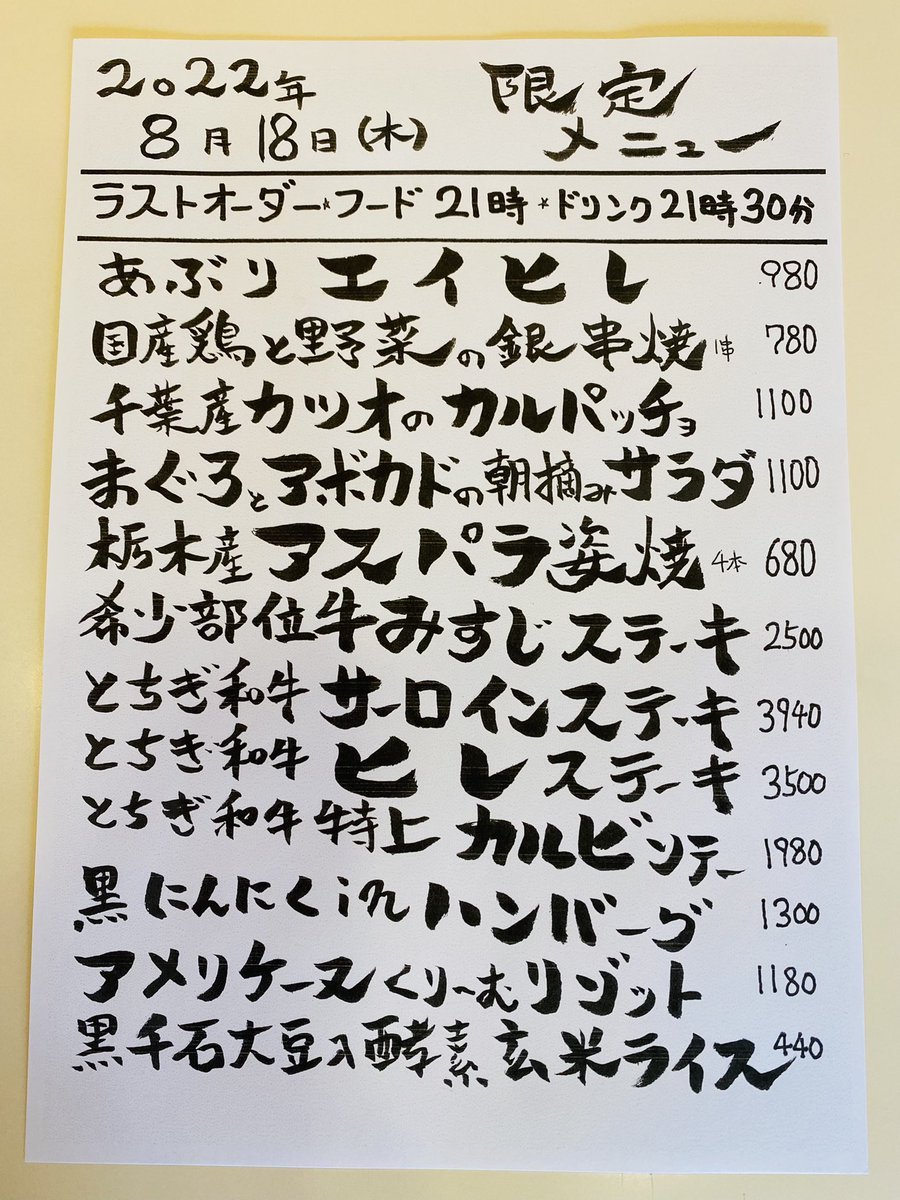 2022年 限定
8月18日(木) メニュー
ラストオーダー☆フード 21時 ☆ドリンク21時30分
あぶり エイヒレ 980
国産鶏と野菜の銀串焼 1串 780
千葉産カツオのカルパッチョ 1100
まぐろとアボカドの朝摘みサラダ 1100
栃木産アスパラ姿焼 4本 680
希少部位牛みすじステーキ 2500
とちぎ和牛 サーロインステーキ 3940
とちぎ和牛 ヒレステーキ 3500
とちぎ和牛特上 カルビソテー 1980
黒にんにくinハンバーグ 1300
アメリケーヌくりーむリゾット 1180
黒千石大豆入酵素玄米ライス 440